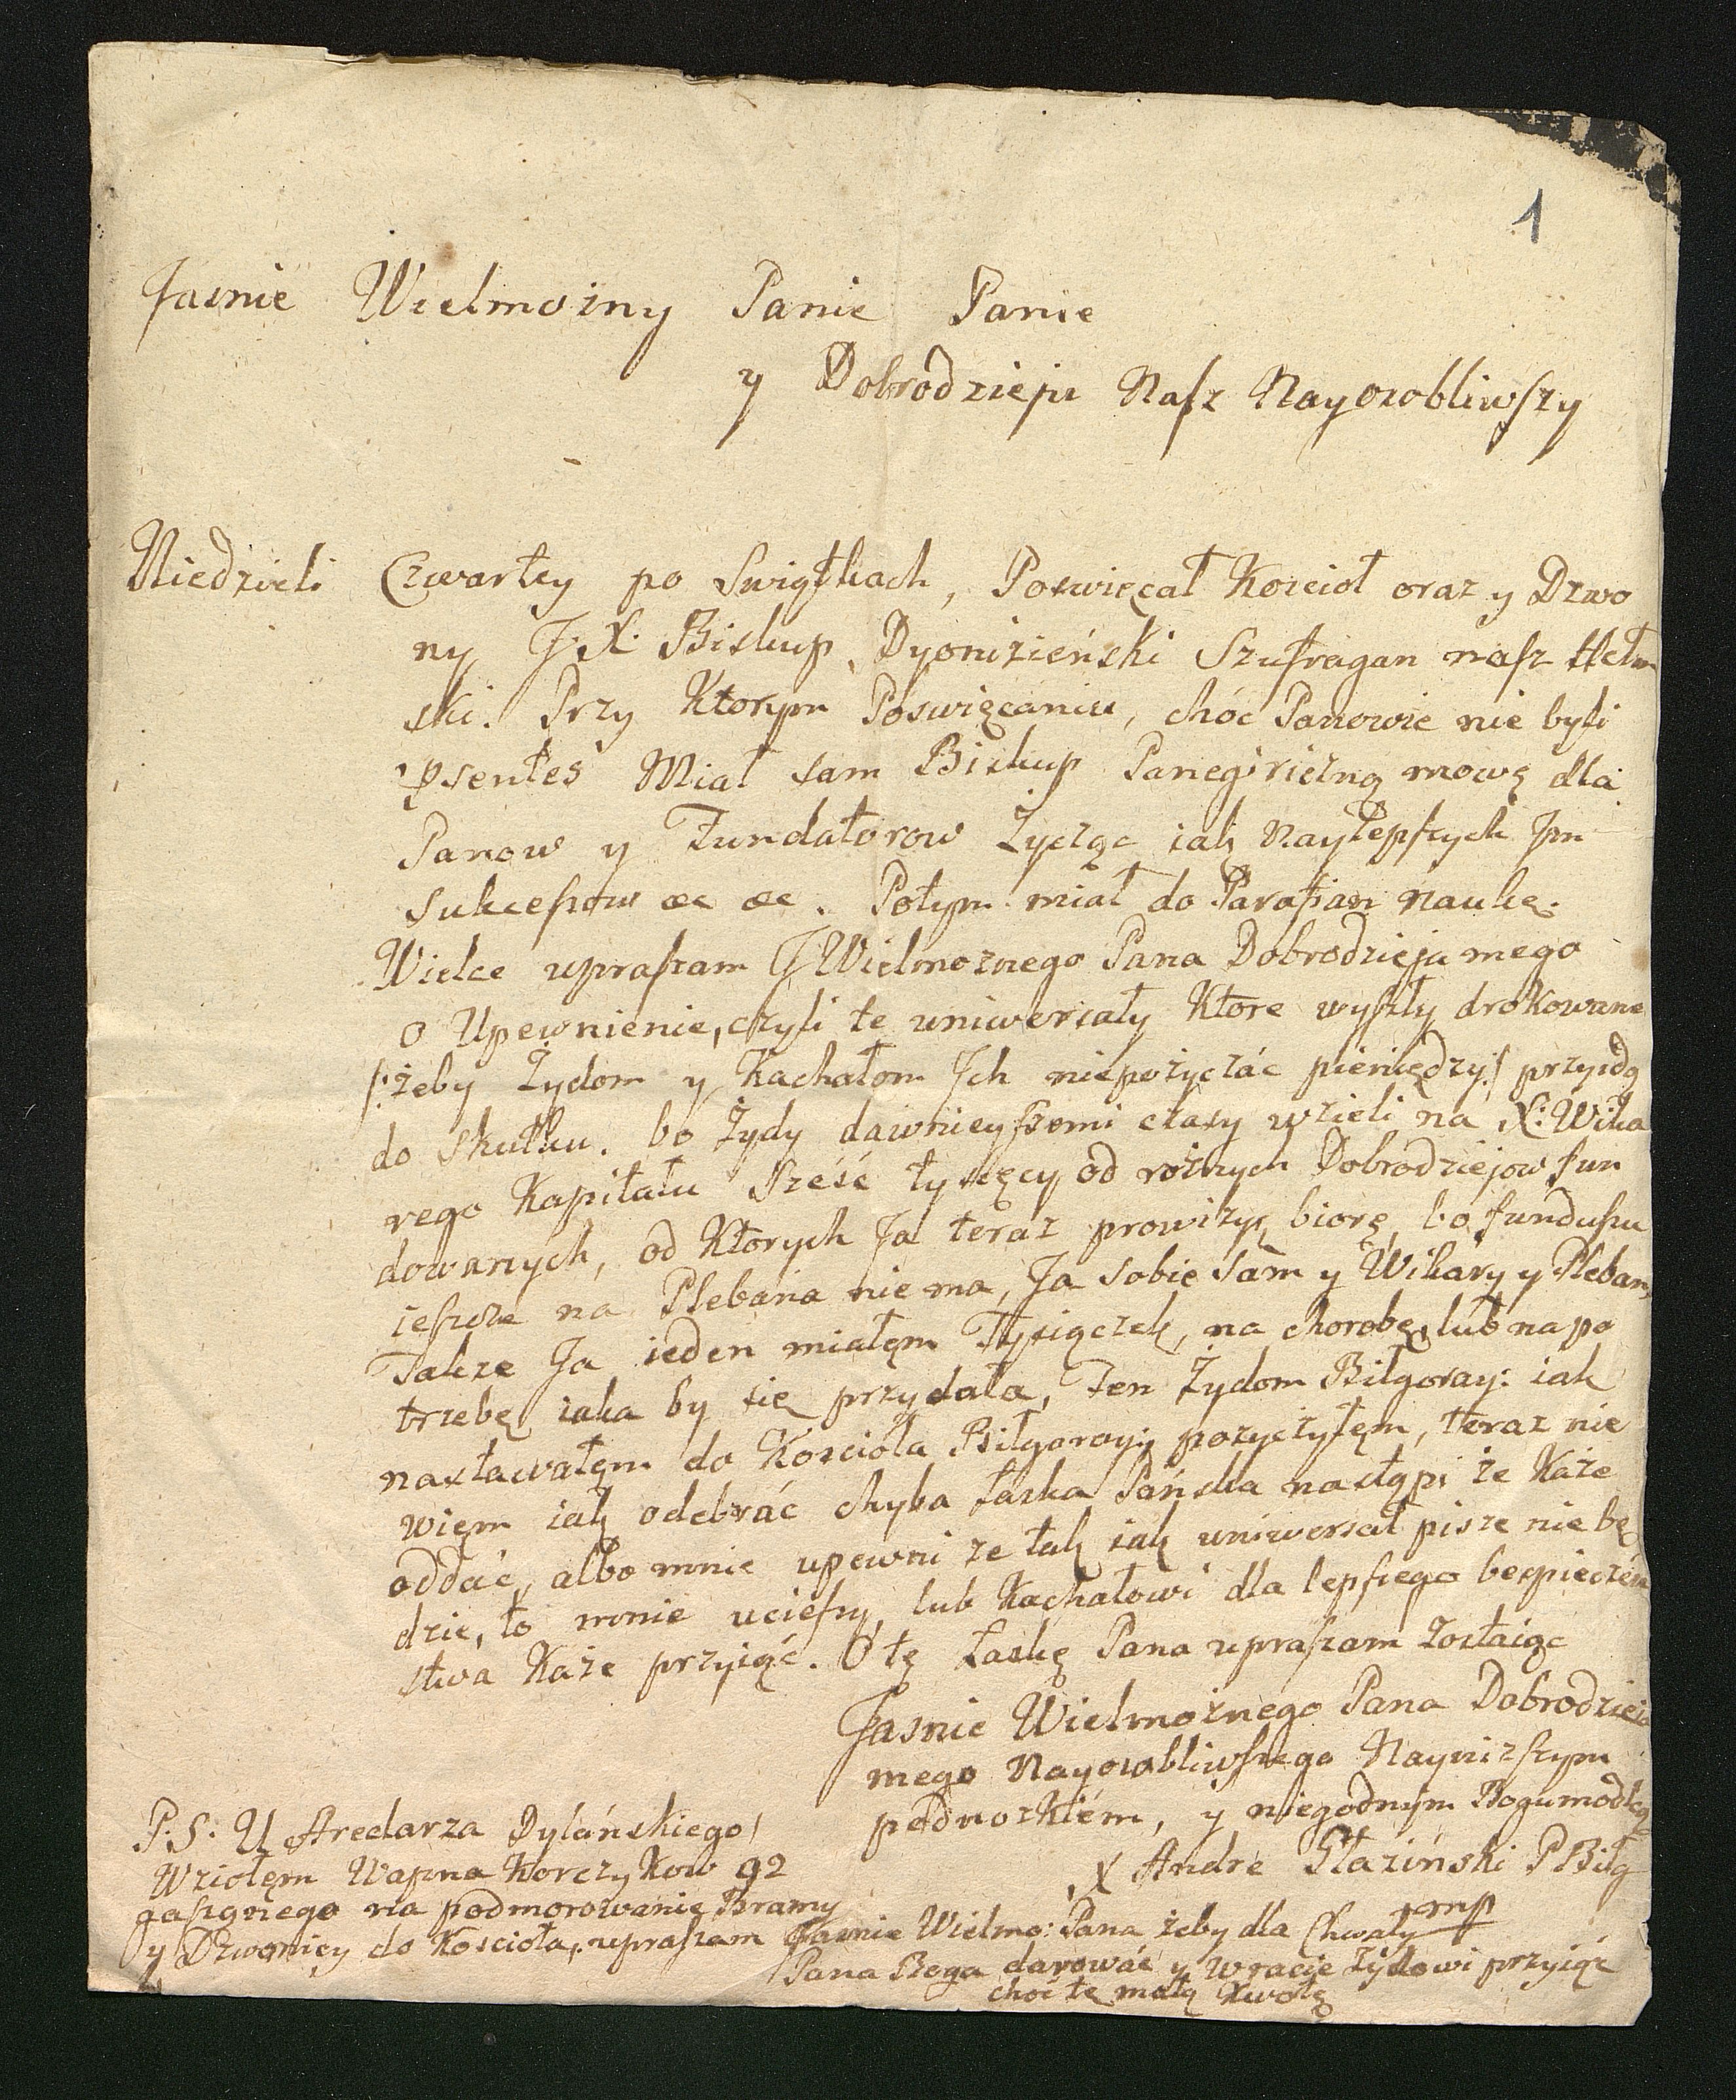 1
Jasnie Wielmozny Panie Panie
y Dobrodzieju Nasz Nayosobliwszy
Niedzieli Czwartey po Swiątkach, Poswięcał Koscioł oraz y Dzwo
ny J: X: Biskup Dyonizieński Szufragan nasz Hełm
ski. Przy Ktorym Poswięcaniu, choć Panowie nie byli
Psentes Miał sam Biskup Panegiriczną mowę dla
Panow y Fundatorow Zycząc iak Naylepszych Im
Sukcessow &c &c. Potym miał do Parafian Naukę.
Wielce upraszam J Wielmoznego Pana Dobrodzieja mego
o Upewnienie, czyli te uniwersały Ktore wyszły drokowane
/: żeby Żydom y Kachałom Ich niepożyczać pieniędzy :/ przyidą
do skutku. bo Żydy dawnieyszemi czasy wzieli na X: Wika
rego Kapitału Sześć tysięcy od roznych Dobrodziejow fun
dowanych, od Ktorych Ja teraz prowizyę biorę, bo funduszu
ieszcze na Plebana nie ma, Ja sobie sam y Wikary y Pleban,
Takze Ja ieden miałem Tysiączek, na chorobę, lub na po
trzebę iaka by się przydała, Ten Żydom Biłgoray: iak
nastawałem do Kosciola Biłgoray: pozyczyłem, teraz nie
wiem iak odebrać chyba Łaska Pańska nastąpi że Każe
oddać, albo mnie upewni ze tak iak uniwersał pisze nie bę
dzie, to mnie ucieszy, lub Kachałowi dla lepszego bezpieczeń
stwa Każe przyiąć. O tę Łaskę Pana upraszam Zostaiąc
Jasnie Wielmożnego Pana Dobrodzieia
mego Nayosobliwszego Nayniższym
podnozkiem, y niegodnym Bogumodlcą
X Andre Głaziński P Biłg
mp
P: S: U Aredarza Dylańskiego
Wziołem Wapna Korczykow 92
gasznego na podmorowanie Bramy
y Dzwonicy do Kosciola, upraszam Jasnie Wielmo: Pana żeby dla Chwały
Pana Boga darować y w racie Żydowi przyiąć
choć tę małą Kwotę